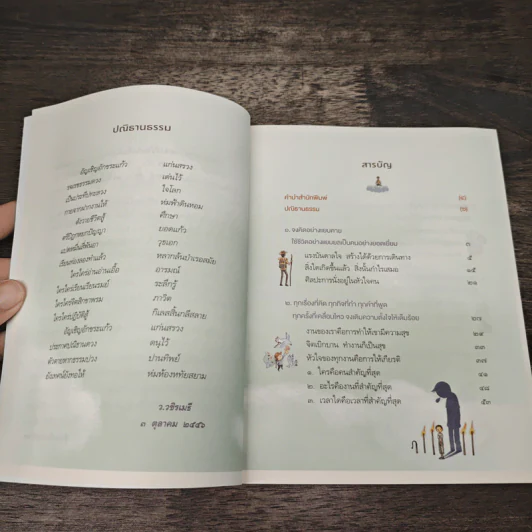 ปณิธานธรรม
อัญเชิญอักขระแก้ว แก่นสรวง
เด่นไว้
เป็นประทีป ใจโลก
ห่มฟ้าดินหอม
ศึกษา
ยอดแก้ว
บุษเอก
หลากล้น
ใคร่ใคร่อ่านอ่านเอื้อ อารมณ์
ใคร่ใคร่เขียนเขียนรมย์ ระลึกรู้
ใคร่ใคร่คิด ภาวิต
ใคร่ใคร่ปฏิบัติสู้ กิเลสสิ้นกลีสลาย
อัญเชิญอักขระแก้ว แก่นสรวง
ประกาศปณิธานดวง ดนูไว้
ปานทิพย์
ห่มห้องหทัยสยาม
ว.วชิรเมธี
๓ ตุลาคม ๒๕๕๖
สารบัญ
คำนำสำนักพิมพ์
ปณิธานธรรม
๑. จงคิดอย่างแยบคาย
ใช้ชีวิตอย่างแยบยลเป็นคนอย่างยอดเยี่ยม ๓
แรงบันดาลใจ สร้างได้ด้วยการเดินทาง ๕
สิ่งใดเกิดขึ้นแล้ว สิ่งนั้นกำไรเสมอ ๑๕
ศิลปะการนั่งอยู่ในหัวใจคน ๒๑
๒. ทุกเรื่องที่คิด ทุกกิจที่ทำ ทุกคำที่พูด
ทุกครั้งที่เคลื่อนไหว จงเติมความตั้งใจให้เต็มร้อย ๒๗
งานของเราคือการทำให้เขามีความสุข ๒๙
จิตเบิกบาน ทำงานก็เป็นสุข ๓๓
หัวใจของทุกงานคือการให้เกียรติ ๓๗
๑. ใครคือคนสำคัญที่สุด ๔๑
๒. อะไรคืองานที่สำคัญที่สุด ๔๘
๓. เวลาใดคือเวลาที่สำคัญที่สุด ๕๓